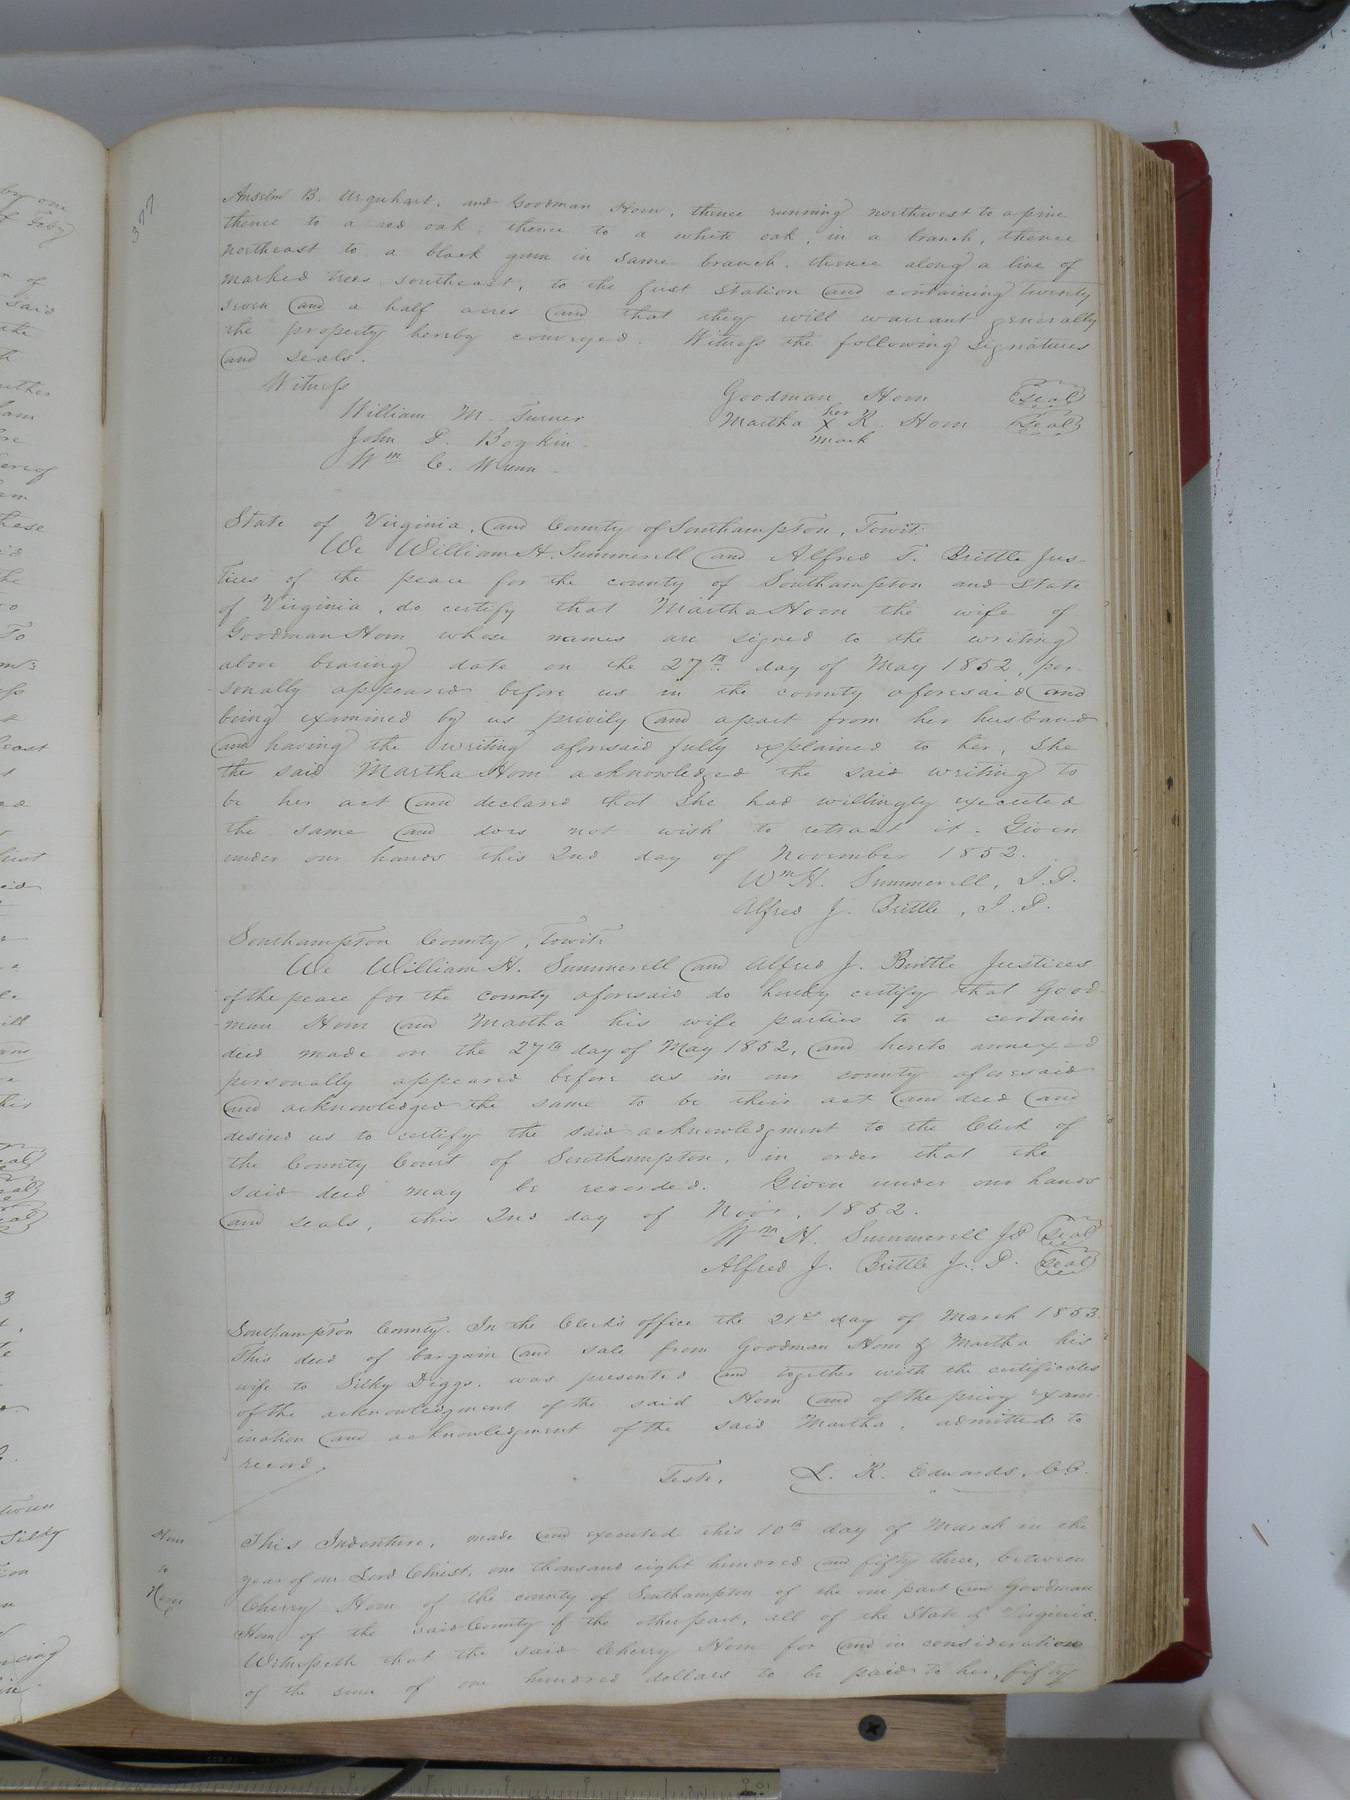 377
Anselm B. Urquhart, and Goodman Horn, thence running northwest to a pine
thence to a red oak, thence to a white oak, in a branch, thence
northeast to a black gum in same branch, thence along a line of
marked trees southeast, to the first station and containing twenty
seven and a half acres and that they will warrant generally
the property hereby conveyed. Witness the following signatures
and seals.
Witness
Goodman Horn (Seal)
William M. Turner
her
Martha X R. Horn (Seal)
mark
John T. Boykin.
Wm C. Wrenn.
State of Virginia, and County of Southampton, Towit:
We William H. Summerell and Alfred T. Brittle Jus-
tices of the peace for the county of Southampton and State
of Virginia, do certify that Martha Horn the wife of
Goodman Horn whose names are signed to the writing
above bearing date on the 27th day of May 1852, per-
sonally appeared before us in the county aforesaid and
being examined by us privily and apart from her husband
and having the writing aforesaid fully explained to her, she
the said Martha Horn acknowledged the said writing to
be her act and declared that she had willingly executed
the same and does not wish to retract it. Given
under our hands this 2nd day of November 1852.
Wm H. Summerell, J.P.
Alfred J. Brittle, J.P.
Southampton County, Towit:
We William H. Summerell and Alfred J. Brittle Justices
of the peace for the county aforesaid do hereby certify that Good-
man Horn and Martha his wife parties to a certain
deed made on the 27th day of May 1852, and hereto annexed
personally appeared before us in our county aforesaid
and acknowledged the same to be their act and deed and
desired us to certify the said acknowledgment to the Clerk of
the County Court of Southampton, in order that the
said deed may be recorded. Given under our hands
and seals, this 2nd day of Nov'r, 1852.
Wm H. Summerell JP (Seal)
Alfred J. Brittle J.P. (Seal)
Southampton County. In the Clerk's office the 21st day of March 1853.
This deed of bargain and sale from Goodman Horn & Martha his
wife to Silky Diggs. was presented and together with the certificates
of the acknowledgment of the said Horn and of the privy exam-
ination and acknowledgment of the said Martha, admitted to
record.
Teste, L. R. Edwards, CC.
Horn
to
Horn
This Indenture, made and executed this 10th day of March in the
year of our Lord Christ, one thousand eight hundred and fifty three, between
Cherry Horn of the county of Southampton of the one part and Goodman
Horn of the said County of the other part, all of the State of Virginia.
Witnesseth that the said Cherry Horn for and in consideration
of the sum of one hundred dollars to be paid to her, fifty